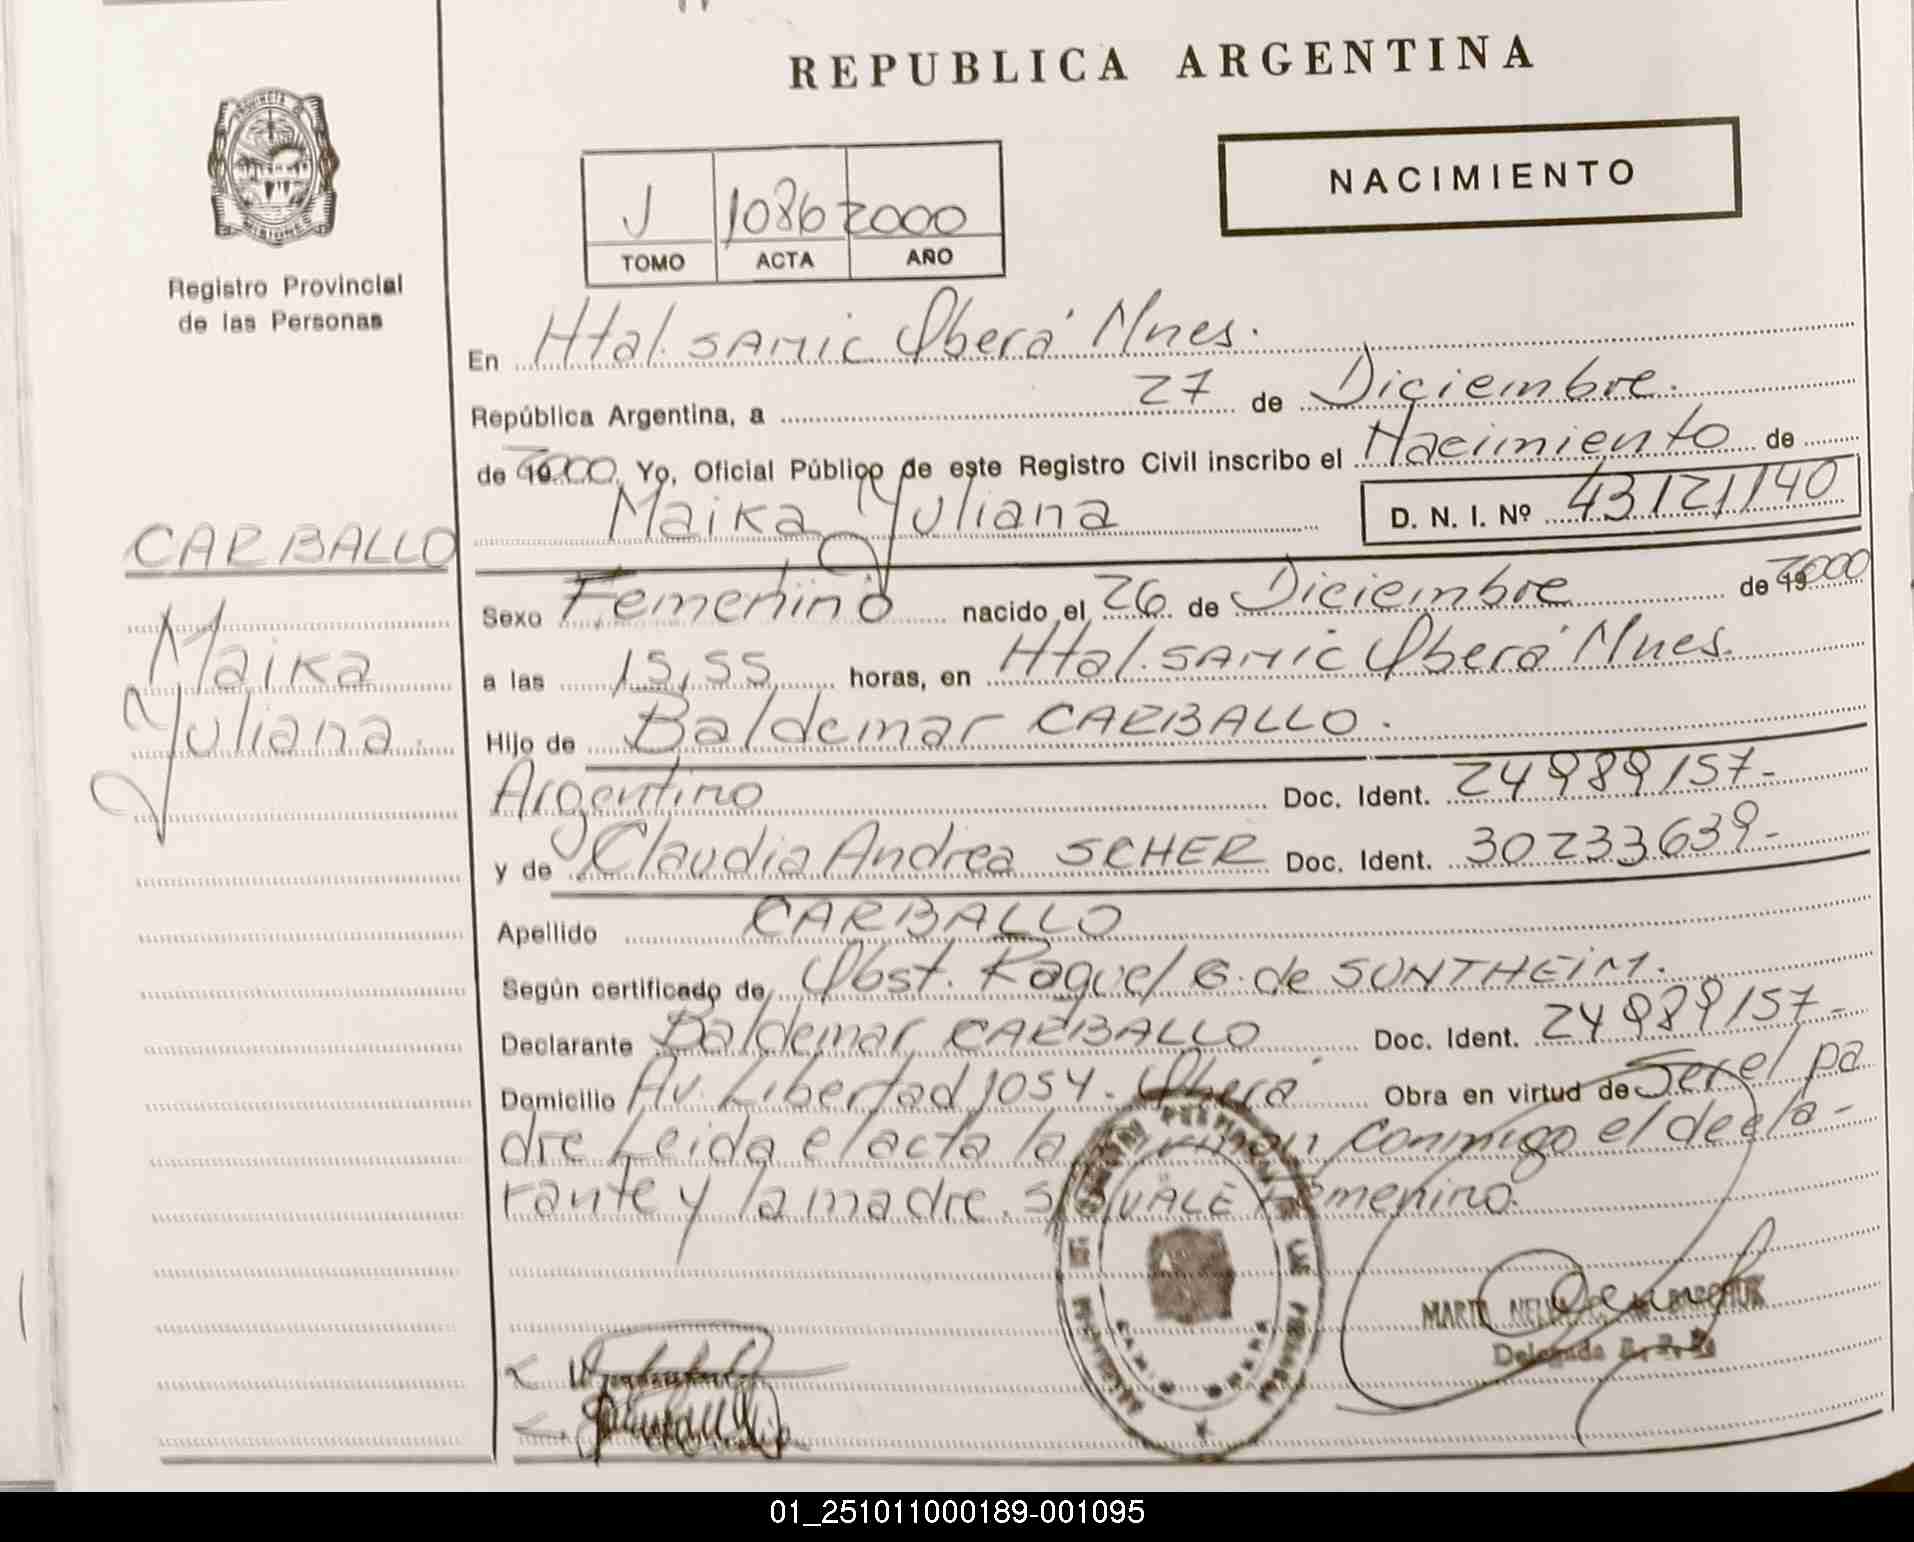 REPUBLICA ARGENTINA
PROVINCIA DE
MISIONES
Registro Provincial
de las Personas
NACIMIENTO
J 1086 2000
TOMO ACTA AÑO
En Htal. SAMIC Oberá Mnes.
República Argentina, a 27 de Diciembre.
de 2000 Yo, Oficial Público de este Registro Civil inscribo el Nacimiento de
Maika Yuliana D. N. I. Nº 43121140
CARBALLO
Maika
Yuliana.
Sexo Femenino nacido el 26 de Diciembre de 19 2000
a las 15,55 horas, en Htal. SAMIC Oberá Mnes.
Hijo de Baldemar CARBALLO.
Argentino Doc. Ident. 24989157-
y de Claudia Andrea SCHER Doc. Ident. 30233639-
Apellido CARBALLO
Según certificado de Obst. Raquel G. de SUNTHEIM.
Declarante Baldemar CARBALLO Doc. Ident. 24989157-
Domicilio Av. Libertad 1054. Oberá Obra en virtud de Ser el pa
dre Leida el acta la firman conmigo el decla-
rante y la madre. S/R VALE Femenino.
Delegada
01_251011000189-001095